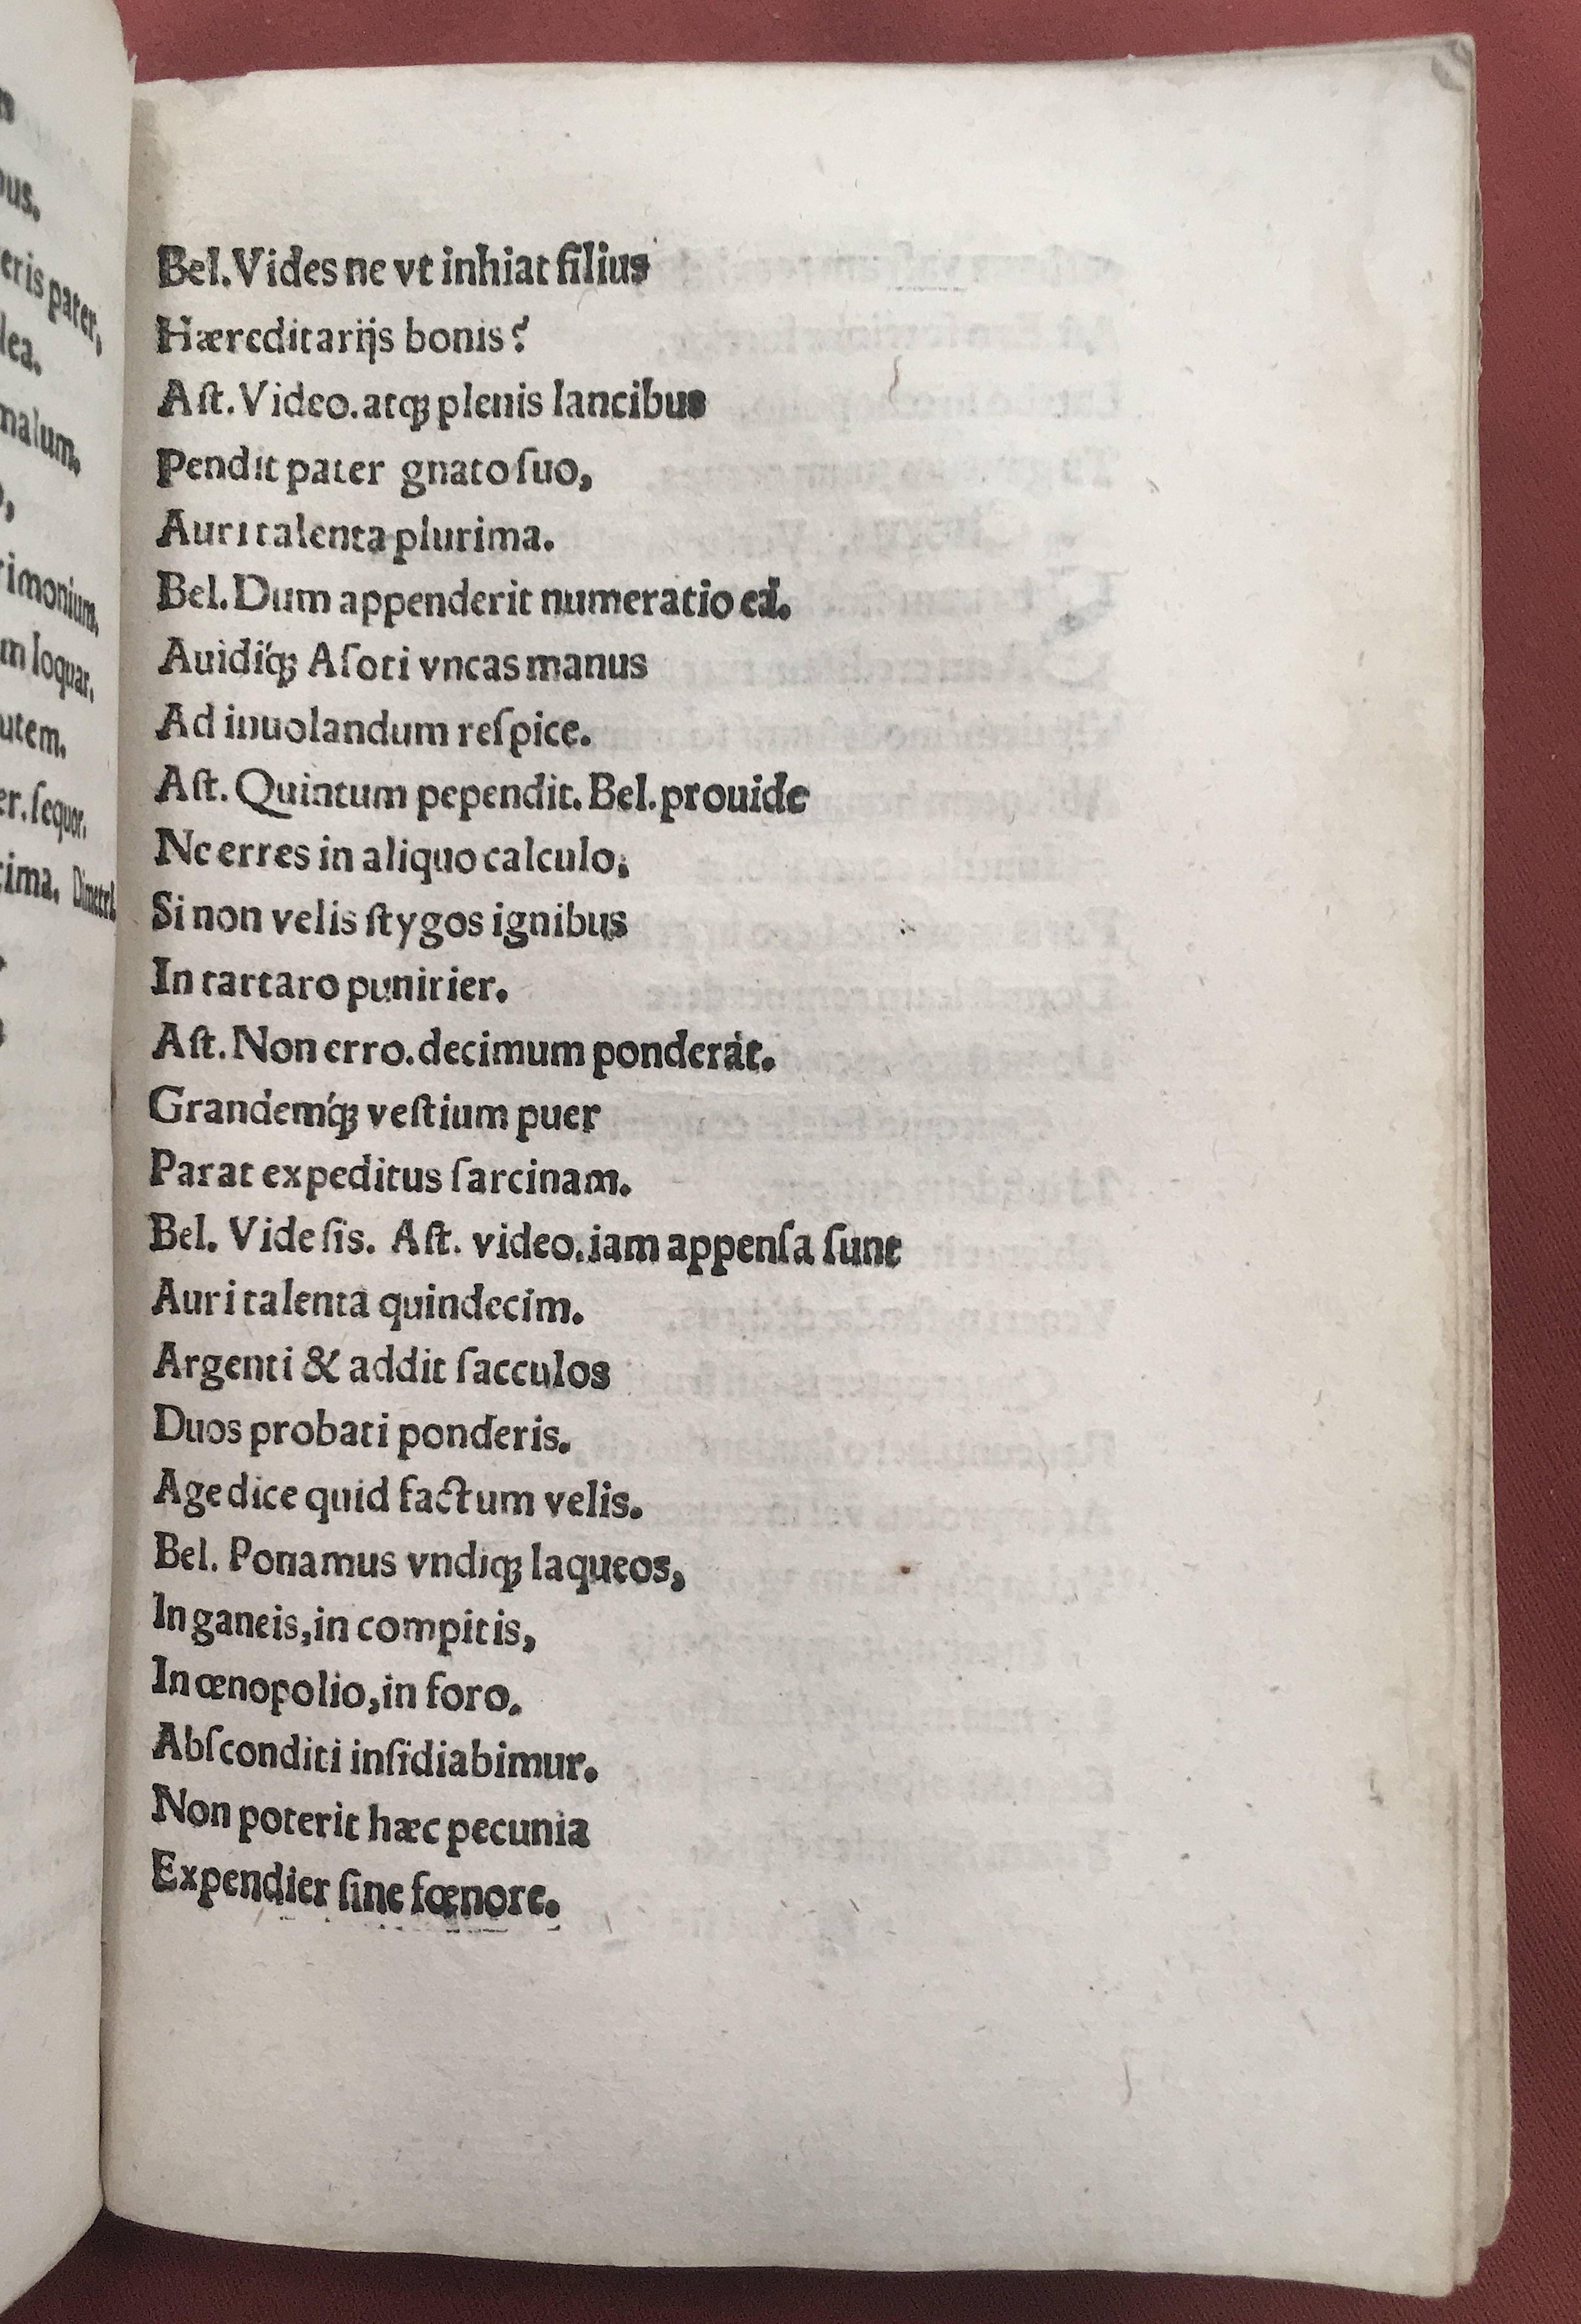 us.
eris pater,
lea.
malum.
rimonium.
m loquar.
utem.
er. ſequor.
tima. Dimetri
Bel. Vides ne vt inhiat filius
Hæreditarijs bonis?
Aſt. Video. atqꝫ plenis lancibus
Pendit pater gnato ſuo,
Auri talenta plurima.
Bel. Dum appenderit numeratio ea.
Auidiqꝫ́ Aſoti vncas manus
Ad inuolandum reſpice.
Aſt. Quintum pependit. Bel. prouide
Ne erres in aliquo calculo,
Si non velis ſtygos ignibus
In tartaro punirier.
Aſt. Non erro. decimum ponderát.
Grandemqꝫ́ veſtium puer
Parat expeditus ſarcinam.
Bel. Vide ſis. Aſt. video. iam appenſa ſunt
Auri talenta quindecim.
Argenti & addit ſacculos
Duos probati ponderis.
Age dice quid factum velis.
Bel. Ponamus vndiqꝫ laqueos,
In ganeis, in compitis,
In œnopolio, in foro.
Abſconditi inſidiabimur.
Non poterit hæc pecunia
Expendier ſine fœnore.